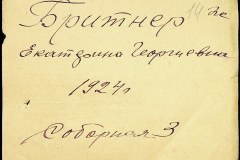 14 2с
Бритнер
Екатерина Георгиевна
1924г
Соборная 3